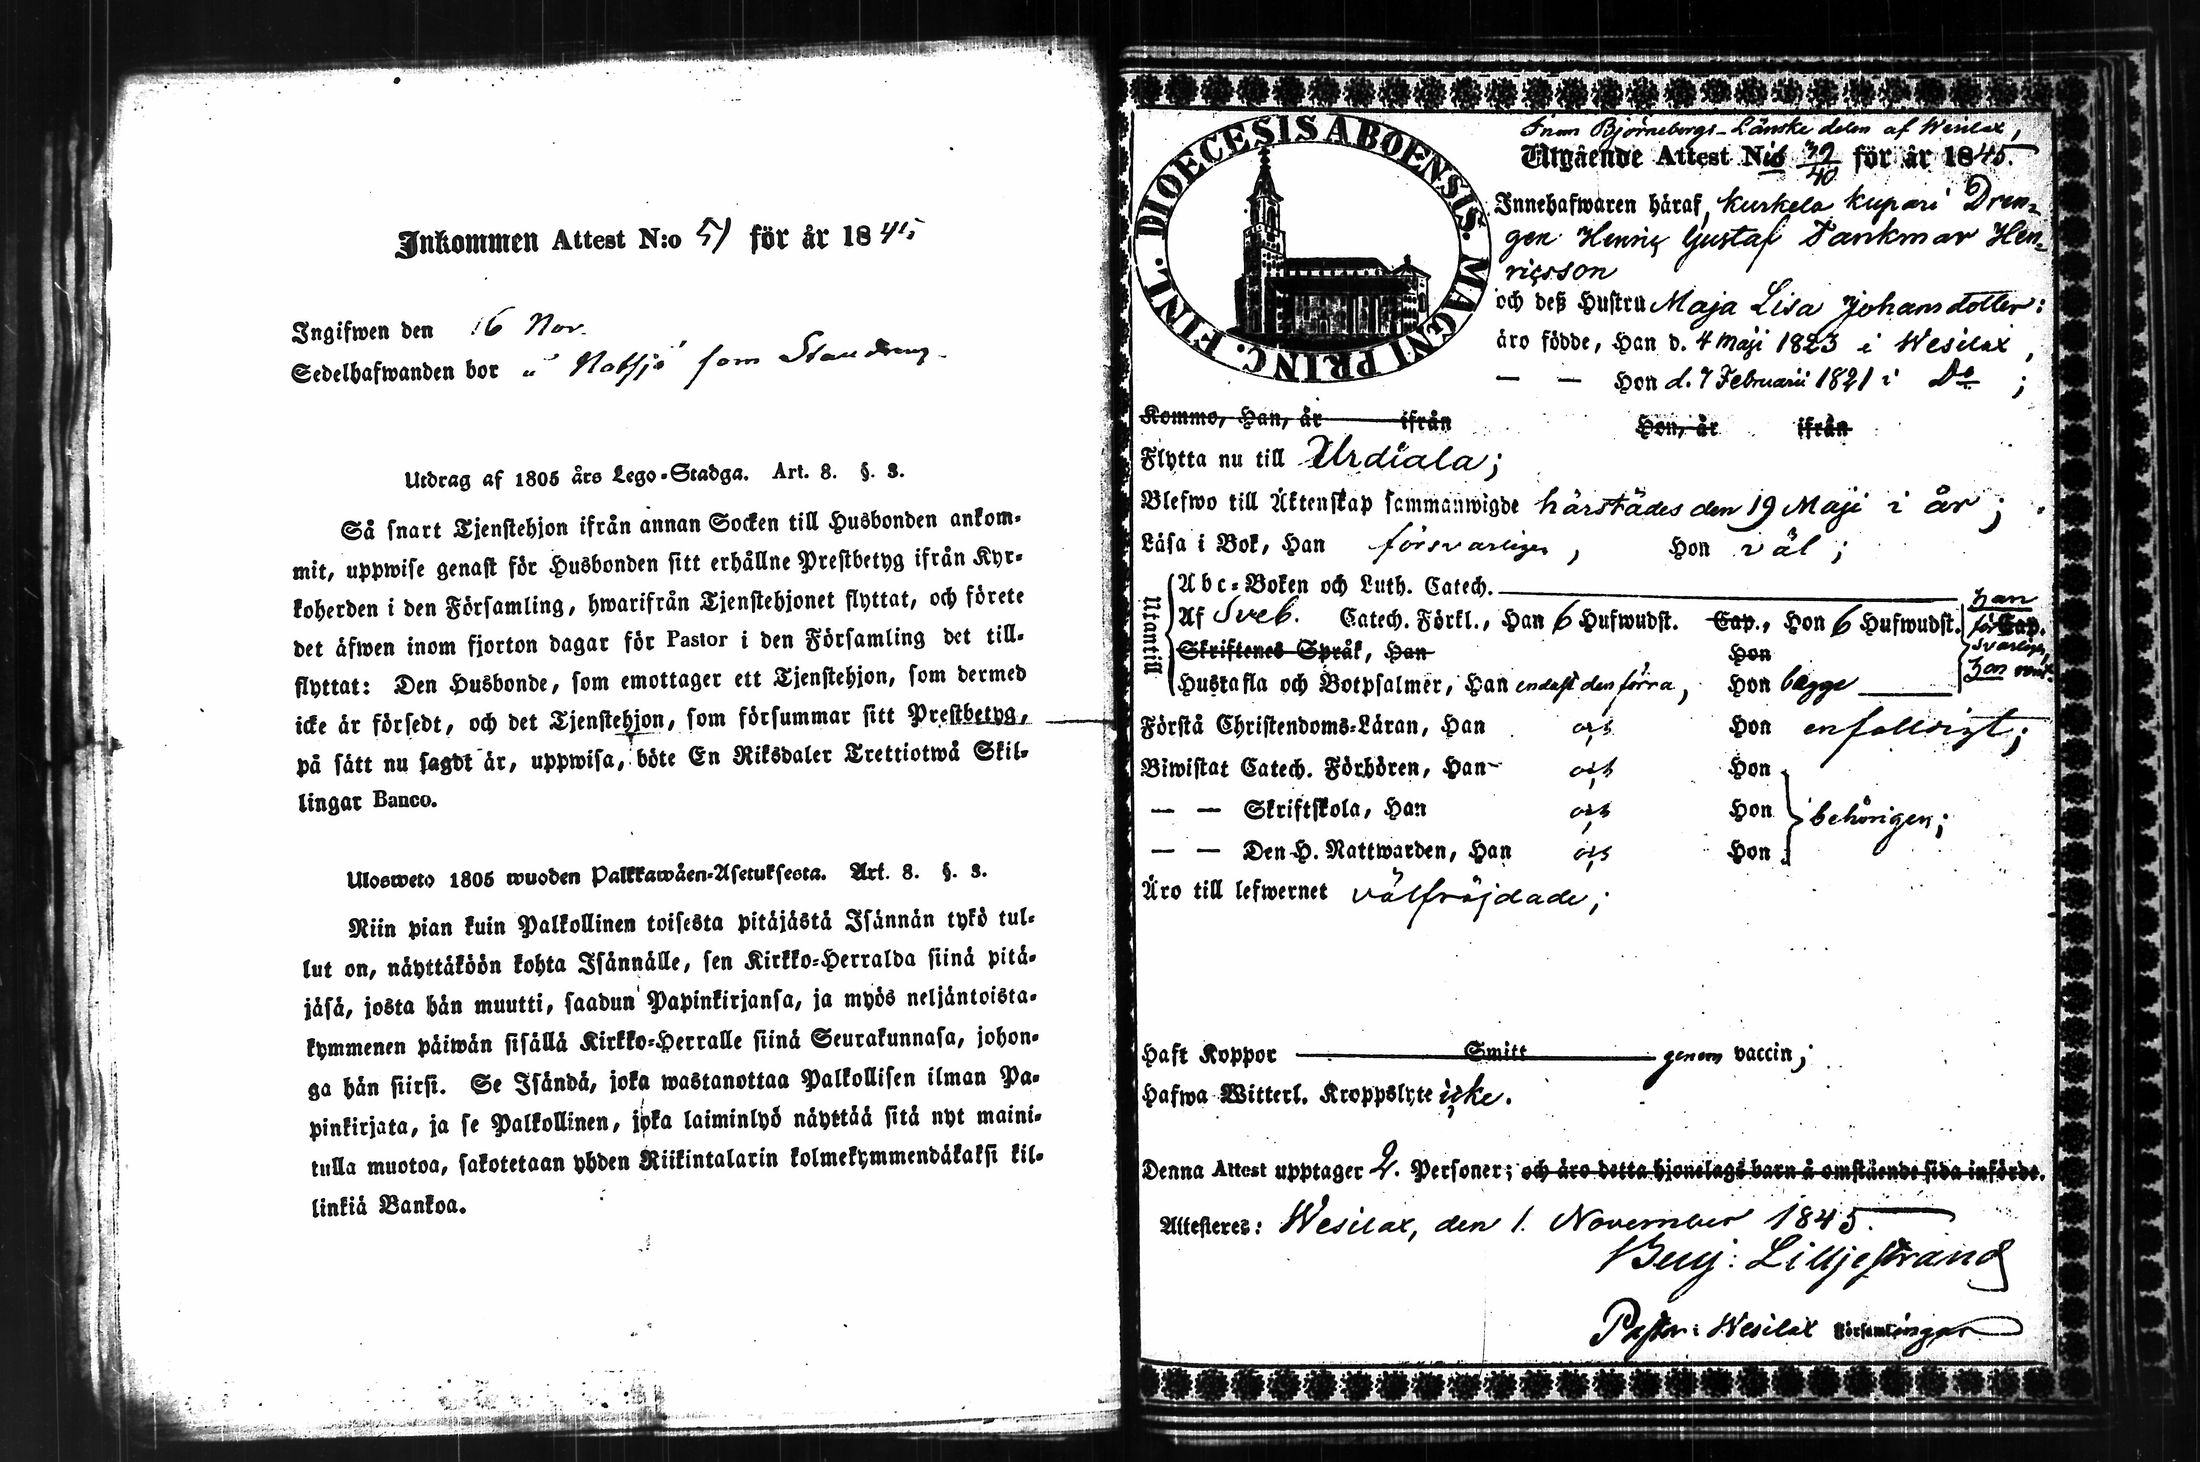 Inkommen Attest N:o 51 för år 1845
Ingifwen den 16 Nov.
Sedelhafwanden bor å Notsjö som Statdreng.
Utdrag af 1805 års Lego-Stadga. Art. 8. §. 3.
Så snart Tjenstehjon ifrån annan Socken till Husbonden ankom-
mit, uppwise genast för Husbonden sitt erhållne Prestbetyg ifrån Kyr-
koherden i den Församling, hwarifrån Tjenstehjonet flyttat, och förete
det äfwen inom fjorton dagar för Pastor i den Församling det till-
flyttat: Den Husbonde, som emottager ett Tjenstehjon, som dermed
icke är försedt, och det Tjenstehjon, som försummar sitt Prestbetyg,
på sätt nu sagdt är, uppwisa, böte En Riksdaler Trettiotwå Skil-
lingar Banco.
Ulosweto 1805 wuoden Palkkawäen-Asetuksesta. Art. 8. §. 3.
Niin pian kuin Palkollinen toisesta pitäjästä Isännän tykö tul-
lut on, näyttäköön kohta Isännälle, sen Kirkko-Herralda siinä pitä-
jäsä, josta hän muutti, saadun Papinkirjansa, ja myös neljäntoista-
kymmenen päiwän sisällä Kirkko-Herralle siinä Seurakunnasa, johon-
ga hän siirsi. Se Isändä, joka wastanottaa Palkollisen ilman Pa-
pinkirjata, ja se Palkollinen, joka laiminlyö näyttää sitä nyt maini-
tulla muotoa, sakotetaan yhden Riikintalarin kolmekymmendäkaksi kil-
linkiä Bankoa.
DIOECESIS ABOENSIS. MAGNI PRINC. FINL.
Inom Björneborgs-Länske delen af Wesilax,
Utgående Attest N:is 39/40 för år 1845.
Innehafwaren häraf, Kurkela Kupari Dren-
gen Henric Gustaf Tankmar Hen-
ricsson
och deß Hustru Maja Lisa Johansdotter:
äro födde, Han d. 4 Maji 1823 i Wesilax,
— — Hon d. 7 Februarii 1821 i Do ;
Kommo, Han, år ifrån Hon, år ifrån
Flytta nu till Urdiala;
Blefwo till Äktenskap sammanwigde härstädes den 19 Maji i år;
Läsa i Bok, Han försvarligen, Hon väl;
Utantill
Abc-Boken och Luth. Catech.
Af Sveb. Catech. Förkl., Han 6 Hufwudst. Cap., Hon 6 Hufwudst. Cap.
han försvarligen,
Skriftenes Språk, Han Hon
hon
Hustafla och Botpsalmer, Han endast den förra, Hon begge
Förstå Christendoms-Läran, Han och Hon enfaldigt;
Biwistat Catech. Förhören, Han och Hon
— — Skriftskola, Han och Hon behörigen;
— — Den H. Nattwarden, Han och Hon
Äro till lefwernet välfräjdade;
Haft Koppor Smitt genom vaccin;
Hafwa Witterl. Kroppslyte icke.
Denna Attest upptager 2. Personer; och äro detta hjonelags barn å omstående sida införde.
Attesteres: Wesilax, den 1. November 1845.
Benj: Liljestrand
Pastor i Wesilax Församlingar